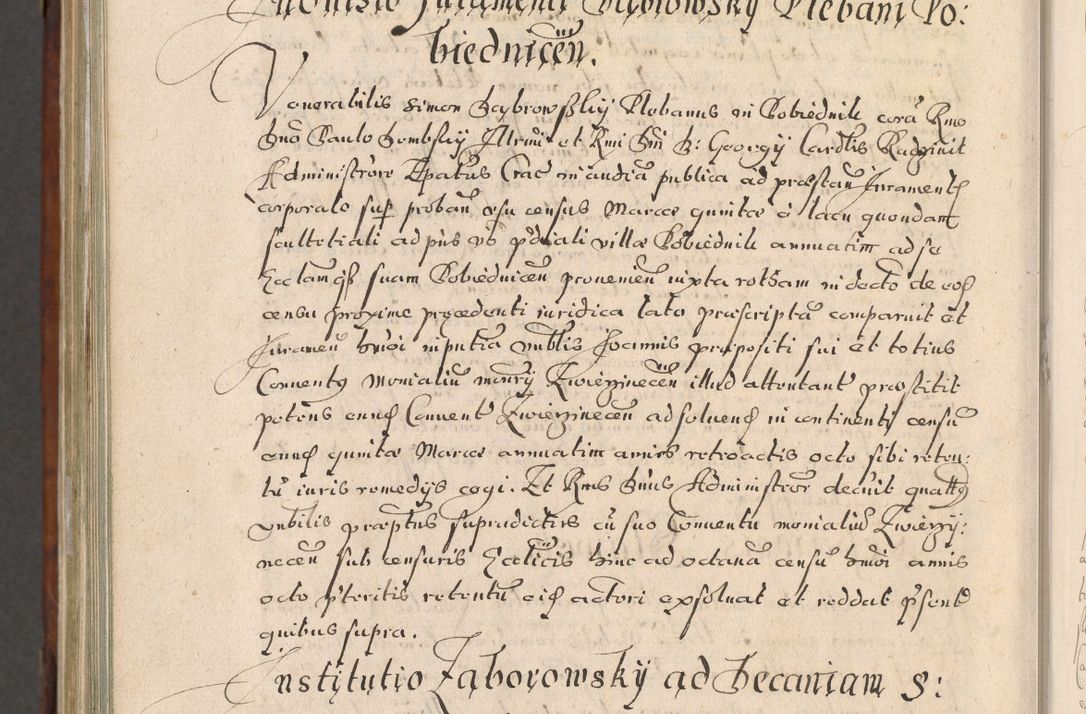 Juramenti Dąbrowsky Plebani Po:
biednicen̄.
Venerabilis Simon Dąbrowskÿ Plebanus in Pobiednik corā Rmo
Dnō Paulo Dembskÿ Illrmi et Rmi Dni D: Georgÿ Cardlis Radziuil
Administrore Epatus Crac in audiā publica ad præstan̄ Juramentū
corporale sup proban̄ usu census Marcæ quintæ è lacu quondam
scultetiali ad pns vo pdiali villæ Pobiednik annuatim ad se
Ecclamqȝ suam Pobiednicen̄ prouenien̄ iuxta rotham in decto de eod
censu proxime præcedenti iuridica lato præscriptā comparuit et
Juramen̄ hmōi in putia vnblis Joannis præpositi sui et totius
Conuentus monialiū mōnrÿ Zwierzinecen̄ illud attentant præstitit
petens eund Conuent Zwierzinecen̄ ad soluend in continenti censū
eund quintæ Marcæ annuatim annis retroactis octo sibi reten:
tū iuris remedÿs cogi. Et Rms Dnus Administror decreuit quattȝ
vnbilis præptus supradictus cū suo Conuentu monialiū Zwierzÿ:
necen̄ sub censuris Ecclicis hinc ad octauā censū hmōi annis
octo pteritis retentū eid actori exsoluat et reddat psente
quibus supra.
Institutio Zaborowskÿ ad Decaniam S: